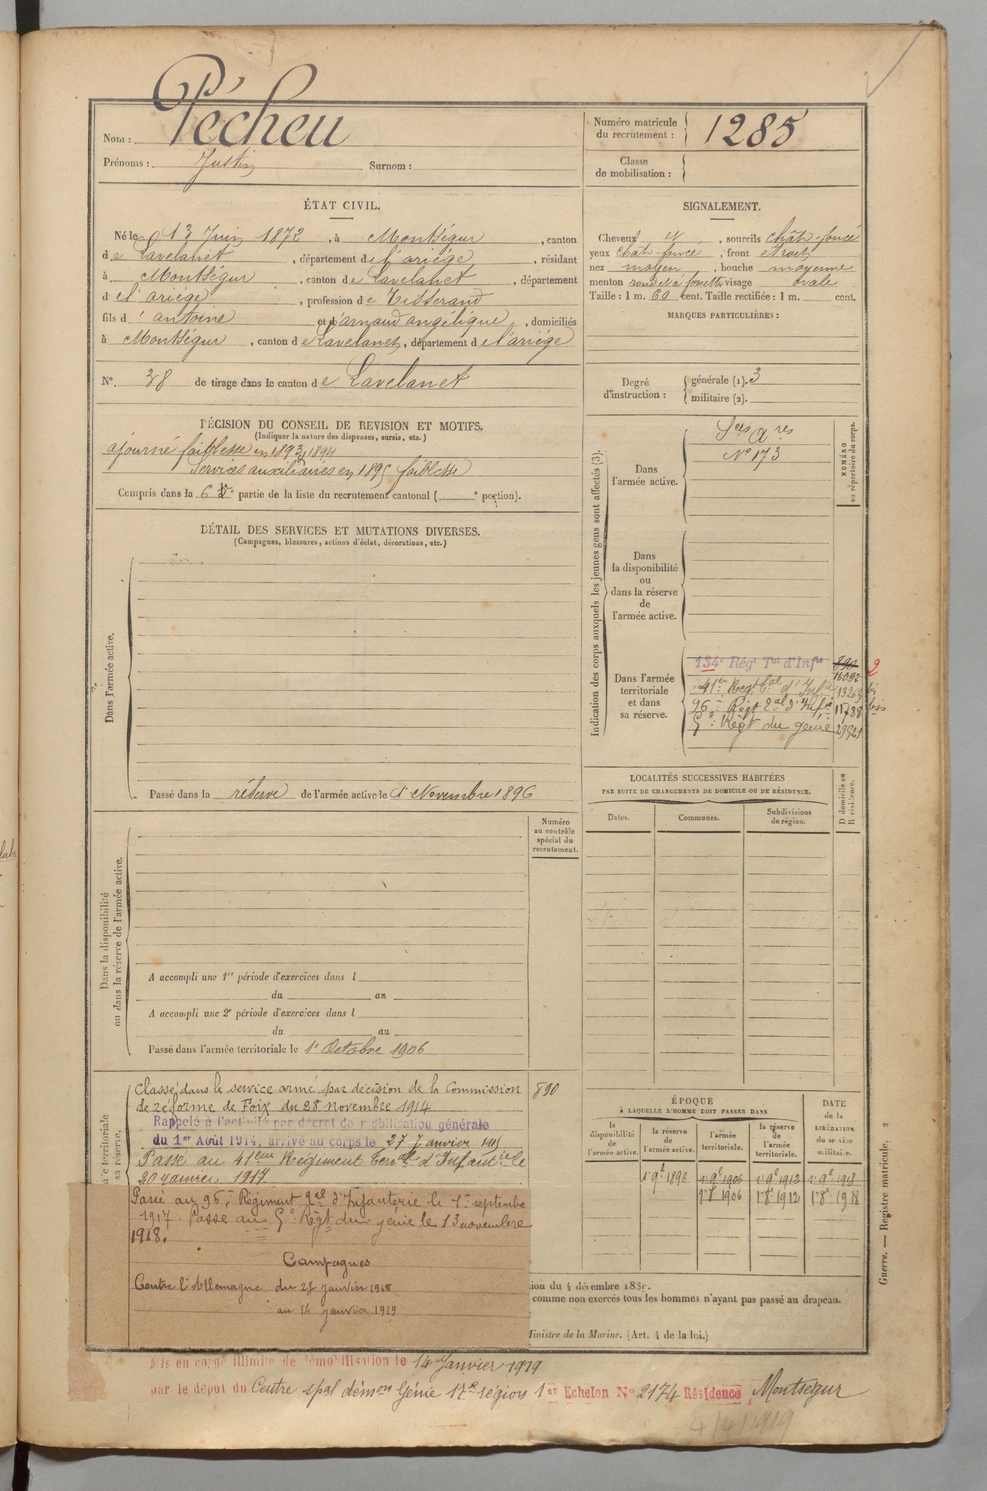 Nom : Pécheu
Prénoms : Justin Surnom :
Numéro matricule du recrutement : 1285
Classe de mobilisation :
ÉTAT CIVIL.
Né le 13 Juin 1872, à Montségur, canton
de Lavelanet, département de l'ariége, résidant
à Montségur, canton de Lavelanet, département
d el'ariége, profession de Tisserand
fils d'antoine et d'arnaud angélique, domiciliés
à Montségur, canton de Lavelanet, département de l'ariége
N° 38 de tirage dans le canton de Lavelanet
SIGNALEMENT.
Cheveux et, sourcils chât. foncé
yeux chât. foncé, front étroit
nez moyen, bouche moyenne
menton rond et à fossette visage ovale
Taille : 1 m. 60 cent. Taille rectifiée : 1 m. cent.
MARQUES PARTICULIÈRES :
Degré d'instruction :
générale (1). 3
militaire (2).
DÉCISION DU CONSEIL DE REVISION ET MOTIFS.
(Indiquer la nature des dispenses, sursis, etc.)
ajourné faiblesse en 1893, 1894
Services auxiliaires en 1895 faiblesse
Compris dans la 6 e partie de la liste du recrutement cantonal ( e portion).
DÉTAIL DES SERVICES ET MUTATIONS DIVERSES.
(Campagnes, blessures, actions d'éclat, décorations, etc.)
Dans l'armée active.
Passé dans la réserve de l'armée active le 1 Novembre 1896
Indication des corps auxquels les jeunes gens sont affectés (3).
NUMÉRO au répertoire du corps.
Dans l'armée active.
Sces Ares
N° 173
Dans la disponibilité ou dans la réserve de l'armée active.
Dans l'armée territoriale et dans sa réserve.
134e Régt Tal d'Infie 890 2
16092
41em Regt Tal d'Infie 13263 bis
96e Régt Tal d'Infie 11788 bis
5e Régt du génie 29521
LOCALITÉS SUCCESSIVES HABITÉES
PAR SUITE DE CHANGEMENTS DE DOMICILE OU DE RÉSIDENCE.
Dates. Communes. Subdivisions de région.
D domicile ou R résidence.
Numéro au contrôle spécial du recrutement.
Dans la disponibilité ou dans la réserve de l'armée active.
A accompli une 1re période d'exercices dans l
du au
A accompli une 2e période d'exercices dans l
du au
Passé dans l'armée territoriale le 1r Octobre 1906
e territoriale
sa réserve.
Classé dans le service armé par décision de la Commission 890
de réforme de Foix du 28 novembre 1914
Rappelé à l'activité par décret de mobilisation générale
du 1er Août 1914, arrivé au corps le 27 Janvier 1915
Passé au 41em Régiment Terral d'Infanterie le
30 janvier 1917.
Passé au 96e Régiment Tal d'Infanterie le 1er septembre
1917. Passé au 5e Régt du génie le 13 novembre
1918.
Campagnes
Contre l'Allemagne du 27 janvier 1915
au 14 janvier 1919
ÉPOQUE
À LAQUELLE L'HOMME DOIT PASSER DANS
DATE de la LIBÉRATION du service militaire.
la disponibilité de l'armée active.
la réserve de l'armée active.
l'armée territoriale.
la réserve de l'armée territoriale.
1r 9e 1896 1r 9e 1906 1r 9e 1912 1r 9e 1918
1r 8e 1906 1r 8e 1912 1r 8e 1918
ion du 4 décembre 188
comme non exercés tous les hommes n'ayant pas passé au drapeau.
Ministre de la Marine. (Art. 4 de la loi.)
Guerre. — Registre matricule. 2
Mis en congé illimité de démobilisation le 14 Janvier 1919
par le dépôt du Centre spal démon Génie 17e région 1er Echelon N° 2174 Résidence Montségur
4/4/1919